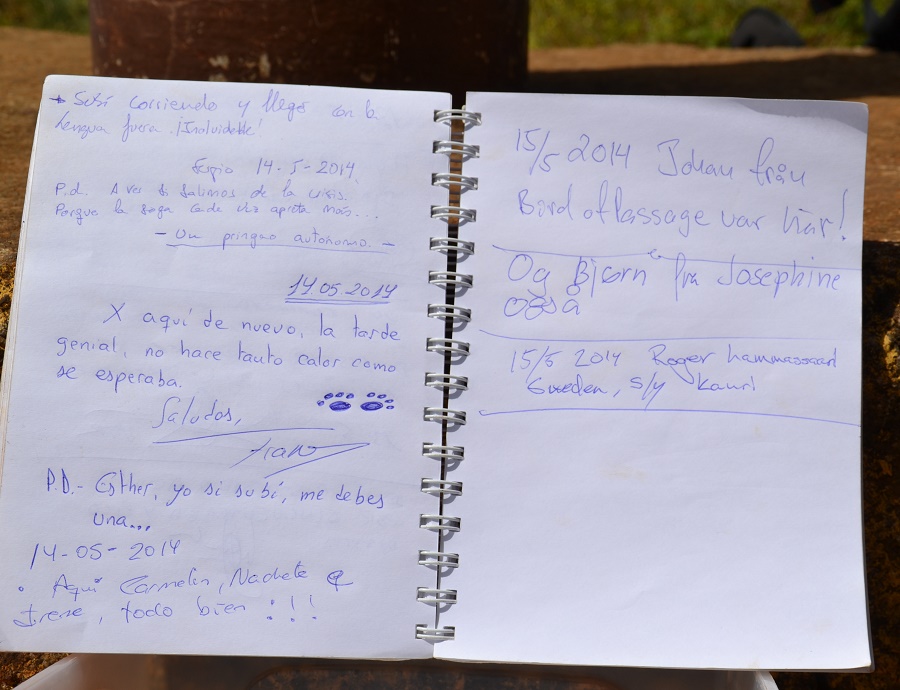 Subí corriendo y llego con la
lengua fuera. ¡Inolvidable!
Sergio 14-5-2014
P.d. A ver si salimos de la crisis.
Porque la soga cada vez aprieta más...
- Un pringao autónomo. -
14.05.2014
X aquí de nuevo, la tarde
genial, no hace tanto calor como
se esperaba.
Saludos,
P.D.- Esther, yo si subí, me debes
una...
14-05-2014
· Aquí Carmelin, Nachete e
Irene, todo bien !!!
15/5 2014 Johan från
Bird of Passage var här!
Og Bjørn fra Josephine
også
15/5 2014 Roger
Sweden, s/y Kauri